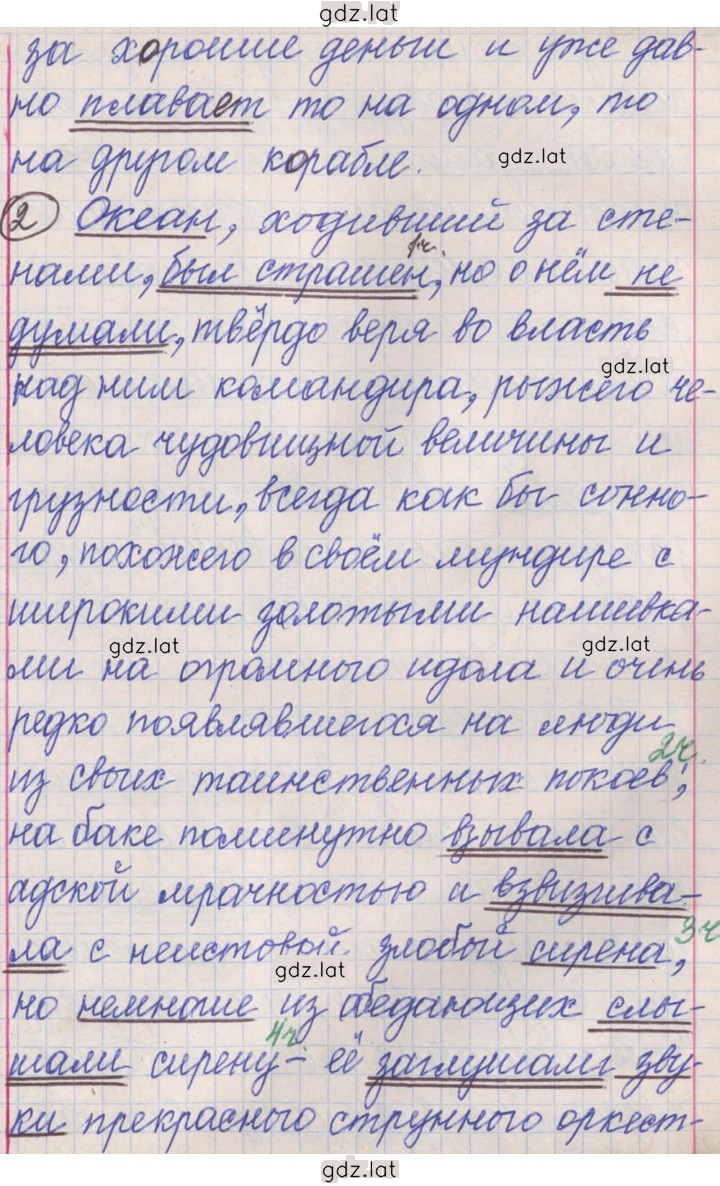 gdz.lat
за хорошие деньги и уже дав-
но плавает то на одном, то
на другом корабле.
gdz.lat
2 Океан, ходивший за сте-
1ч.
нами, был страшен, но о нём не
думали, твёрдо веря во власть
gdz.lat
над ним командира, рыжего че-
ловека чудовищной величины и
грузности, всегда как бы сонно-
го, похожего в своём мундире с
широкими золотыми нашивка-
gdz.lat gdz.lat
ми на огромного идола и очень
редко появлявшегося на люди
2ч.
из своих таинственных покоев;
на баке поминутно взывала с
адской мрачностью и взвизгива-
3ч
ла с неистовой злобой сирена,
gdz.lat
но немногие из обедающих слы-
4ч.
шали сирену – её заглушали зву-
ки прекрасного струнного оркест-
gdz.lat